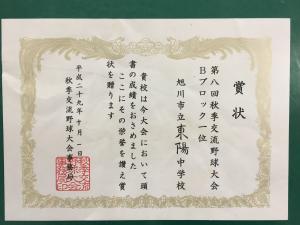 賞状
第八回秋季交流野球大会
Bブロック一位
旭川市立東陽中学校
貴校は今大会において頭
書の成績をおさめました
ここにその栄誉を讃え賞
状を贈ります
平成二十九年十月一日
秋季交流野球大会